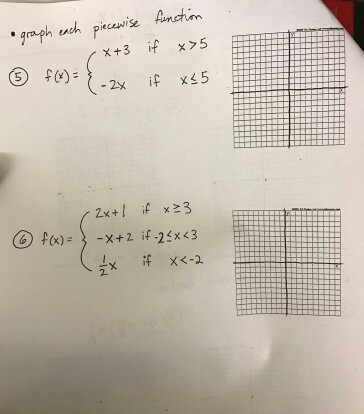 • graph each piecewise function
⑤ f(x) = { x+3 if x>5
-2x if x≤5
⑥ f(x) = { 2x+1 if x≥3
-x+2 if -2≤x<3
1/2 x if x<-2